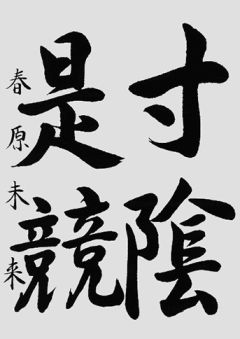 寸陰
是競
春原未来